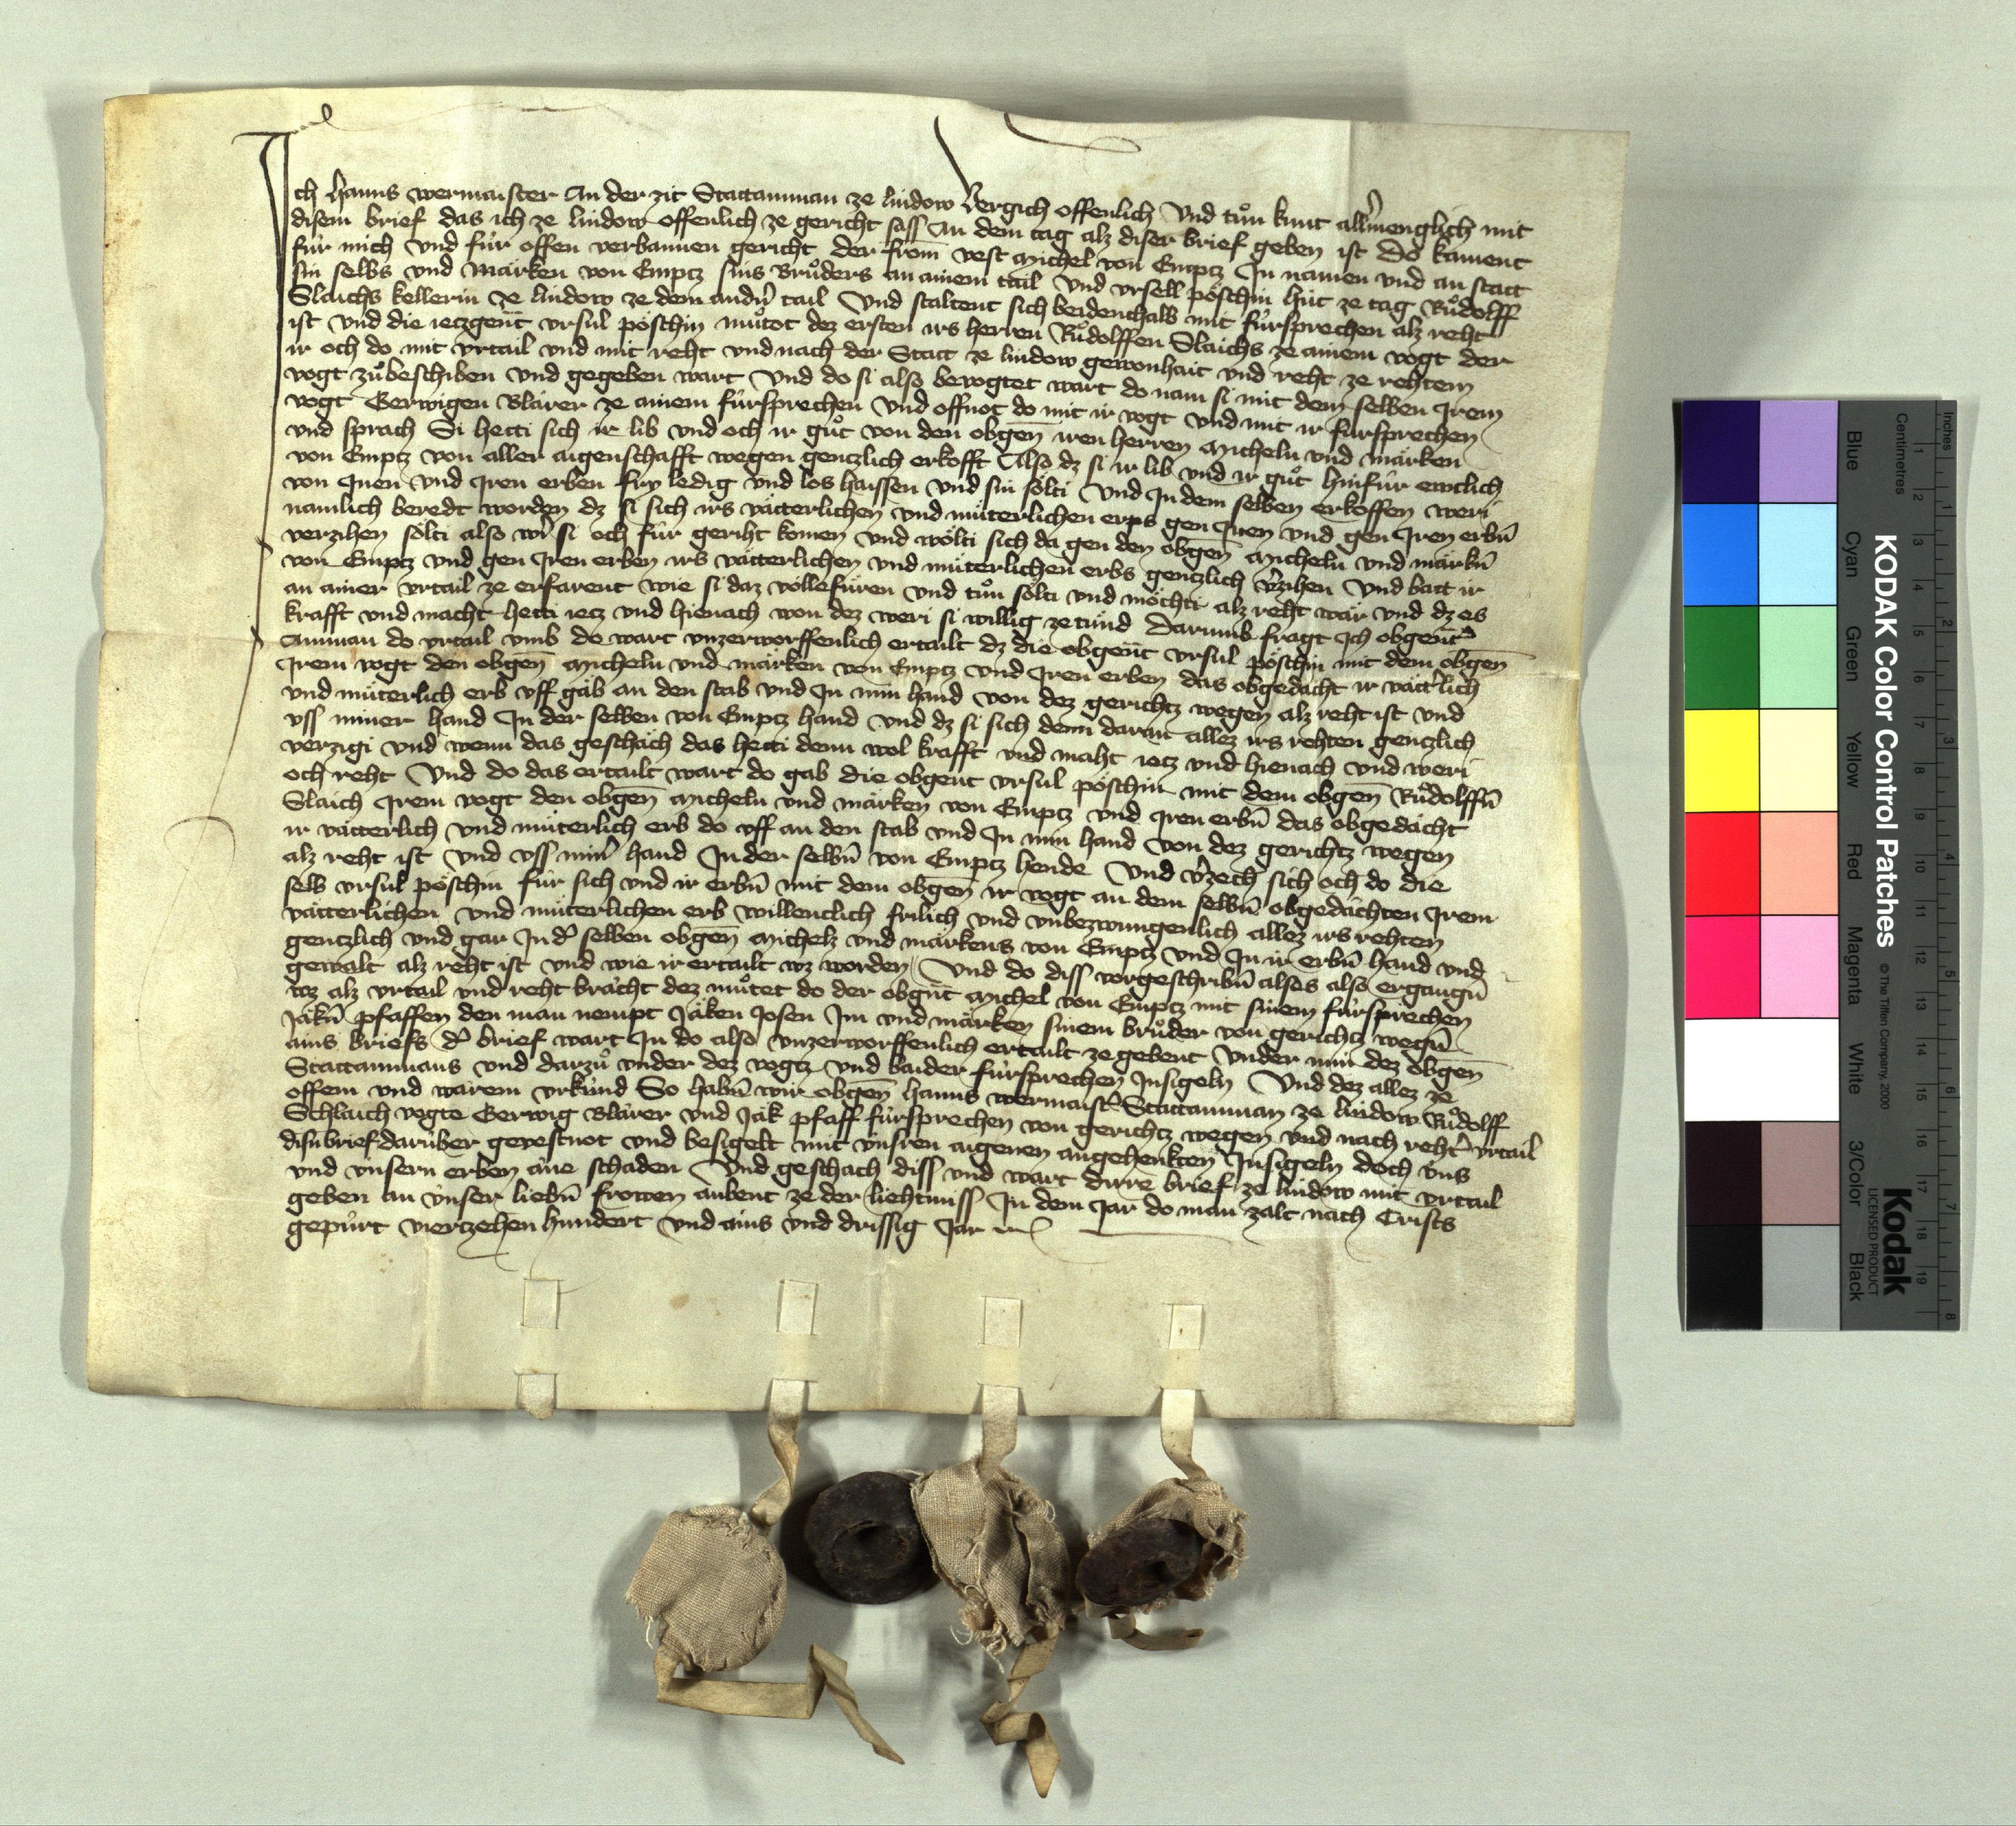 Ich hanns wermaister An der zit Stattamman ze lindow Vergich offenlich Vnd tuͦn kunt allermenglich mit
disem brief das ich ze lindow offenlich ze gericht sass An dem tag alz diser brief geben ist Do kament
fuͥr mich Vnd fuͥr offen verbannen gericht der from̄ vest Michel von Emptz In namen vnd an statt
sin selbs vnd Märken von Emptz sins Bruͦders an ainem tail Vnd vrsell pöschin huͥt ze tag Ruͦdolff
Slaichs kellerin ze lindow ze dem andern̄ tail Vnd staltent sich beidenthalb mit fuͥrsprechen alz reht
ist vnd die ietzgen̄t vrsul pöschin muͦtot dez ersten irs herren Ruͦdolffen Slaichs ze ainem vogt der
ir och do mit vrtail vnd mit reht vnd nach der Statt ze lindow gewonhait vnd reht ze rehtem
vogt zuͦbeschiben vnd gegeben wart Vnd do si also bevogtet wart do nam si mit dem selben Irem
vogt Gerwigen Blarer ze ainem fuͥrsprechen Vnd offnot do mit ir vogt vnd mit ir fuͥrsprechen
vnd sprach Si hetti sich ir lib vnd och ir guͦt von den obgen̄ iren herren Micheln vnd märken
von Emptz von aller aigenschafft wegen gentzlich erkofft Also dz si ir lib vnd ir guͦt hinfuͥr ewclich
von Inen vnd Iren erben fry ledig vnd los haissen vnd sin sölti Vnd In dem selben erkoffen weri
namlich beredt worden dz si sich irs vätterlichen vnd muͥterlichen erps gen Inen vnd gen Iren erbn̄
verzihen sölti also wer si och fuͥr geriht komen vnd wölti sich da gen den obgen̄ Micheln vnd märkn̄
von Emptz vnd gen Iren erben irs vätterlichen vnd muͥterlichen erbs gentzlich verzihen Vnd batt ir
an ainer vrtail ze erfarent wie si daz vollefuͥren vnd tuͦn sölti vnd möchti alz reht wär vnd dz es
krafft vnd macht hetti ietz vnd hienach von dez weri si willig ze tuͥnd Darumb fragt Ich obgent̄er
Amman do vrtail vmb do wart vnzerworffenlich ertailt dz die obgen̄t vrsul pöschin mit dem obgen̄
Irem vogt den obgen̄ Micheln vnd märken von Emptz vnd Iren erben das obgedacht ir vätterlich
vnd muͥterlich erb vff gäb an den stab vnd In min hand von dez gerichtz wegen alz reht ist vnd
vss miner hand In der selben von Emptz hand vnd dz si sich denn daran allez irs rehten gentzlich
verzigi vnd wenn das geschäch das hetti denn wol krafft vnd maht ietz vnd hienach vnd weri
och reht Vnd do das ertailt wart do gab die obgent vrsul pöschin mit dem obgen̄ Ruͦdolffn̄
Slaich Irem vogt den obgen̄ Micheln vnd märken von Emptz vnd Iren erbn̄ das obgedächt
ir vätterlich vnd muͥterlich erb do vff an den stab vnd In min hand von dez gerichtz wegen
alz reht ist vnd vss miner hand In der selbn̄ von Emptz hende Vnd verzech sich och do die
selb vrsul pöschin fuͥr sich vnd ir erbn̄ mit dem obgen̄ ir vogt an dem selbn̄ obgedächten Irem
vätterlichen vnd muͥterlichen erb willenclich frilich vnd vnbezwungenlich allez irs rehten
gentzlich vnd gar In der selben obgen̄ Michelz vnd märkens von Emptz vnd In ir erbn̄ hand vnd
gewalt alz reht ist vnd wie ir ertailt wz worden Vnd do diss vorgeschribn̄ alles also ergangn̄
wz alz vrtail vnd reht bracht dez muͦtet do der obgn̄t Michel von Emptz mit sinem fuͥrsprechen
Jäkn̄ pfaffen den man nempt Jäken Josen Im vnd märken sinem bruͦder von gerichtz wegn̄
ains briefs der brief wart In do also vnzerworffenlich ertailt ze gebent Vnder min dez obgen̄
Stattammans vnd darzuͦ vnder dez vogtz vnd baider fuͥrsprechen Insigeln Vnd dez allez ze
offem vnd warem vrkuͥnd So habn̄ wir obgen̄ hanns wermaister Stattamman ze lindow Ruͦdolff
Schlaich vogte Gerwig Blarer vnd Jäk pfaff fuͥrsprechen von gerichtz wegen vnd nach rehter vrtail
disn brief daruͥber gevestnot vnd besigelt mit vnsren aigenen angehenkten Insigeln doch vns
vnd vnsern erben äne schaden Vnd geschach diss vnd wart dirre brief ze lindow mit vrtail
geben an vnser liebn̄ frowen äbent ze der liehtmiss In dem Jar do man zalt nach Crists
gepuͥrt vierzehen hundert vnd ains vnd drissig Jar
Inches
Centimetres
KODAK Color Control Patches
© The Tiffen Company, 2000
Kodak
LICENSED PRODUCT
Blue
Cyan
Green
Yellow
Red
Magenta
White
3/Color
Black